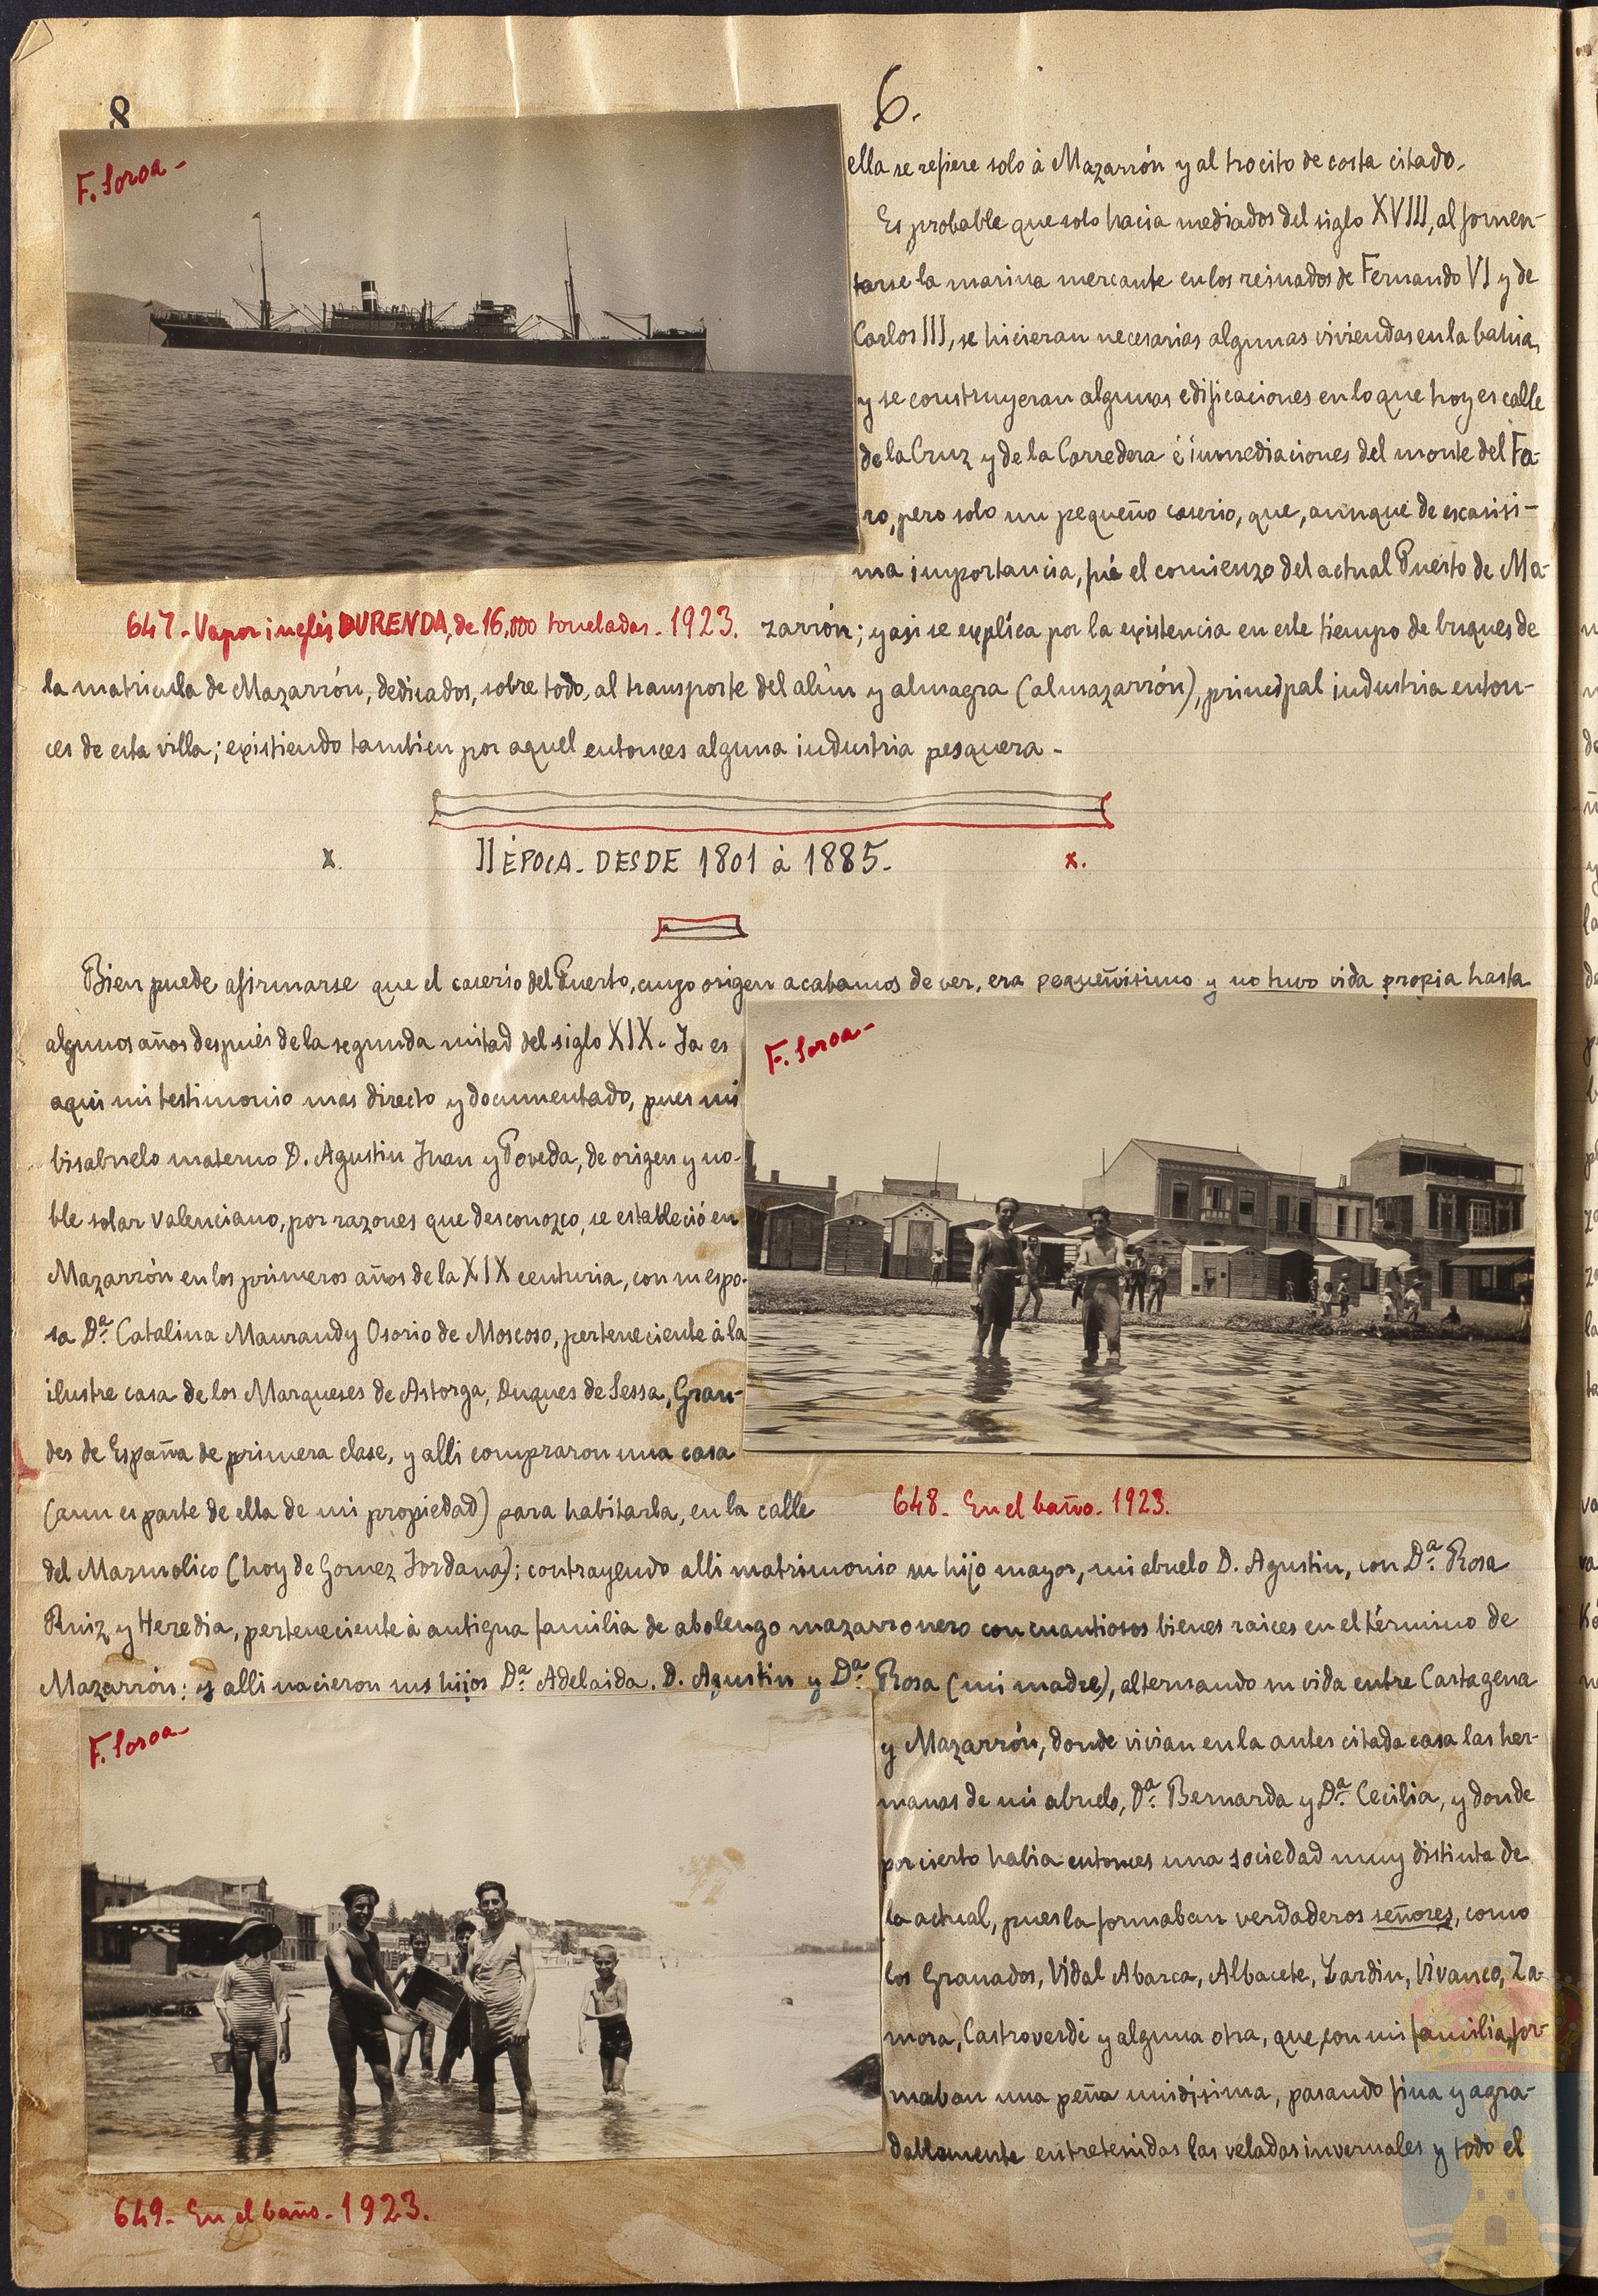 8
6.
F. Soroa-
ella se refiere solo à Mazarrón y al trocito de costa citado.
Es probable que solo hacia mediados del siglo XVIII, al fomen-
tarse la marina mercante en los reinados de Fernando VI y de
Carlos III, se hicieran necesarias algunas viviendas en la bahia,
y se construyeran algunas edificaciones en lo que hoy es calle
de la Cruz y de la Corredera é inmediaciones del monte del Fa-
ro, pero solo un pequeño caserio, que, aunque de escasisi-
ma importancia, fué el comienzo del actual Puerto de Ma-
647.- Vapor inglés DURENDA, de 16,000 toneladas.- 1923.
zarrón; y asi se explica por la existencia en este tiempo de buques de
la matricula de Mazarrón, dedicados, sobre todo, al transporte del alún y almagra (almazarrón), principal industria enton-
ces de esta villa; existiendo tambien por aquel entonces alguna industria pesquera.-
x. II ÉPOCA. DESDE 1801 à 1885. x.
Bien puede afirmarse que el caserio del Puerto, cuyo origen acabamos de ver, era pequeñisimo y no tuvo vida propia hasta
algunos años después de la segunda mitad del siglo XIX. Ya es
aqui mi testimonio mas directo y documentado, pues mi
bisabuelo materno D. Agustin Juan y Poveda, de origen y no-
ble solar valenciano, por razones que desconozco, se estableció en
Mazarrón en los primeros años de la XIX centuria, con su espo-
sa Dª. Catalina Maurandy Osorio de Moscoso, perteneciente à la
ilustre casa de los Marqueses de Astorga, Duques de Sessa, Gran-
des de España de primera clase, y alli compraron una casa
(aun es parte de ella de mi propiedad) para habitarla, en la calle
F. Soroa-
648.- En el baño.- 1923.
del Marmolico (hoy de Gomez Jordana); contrayendo alli matrimonio su hijo mayor, mi abuelo D. Agustin, con Dª. Rosa
Ruiz y Heredia, perteneciente à antigua familia de abolengo mazarronero con cuantiosos bienes raices en el término de
Mazarrón; y alli nacieron sus hijos Dª. Adelaida, D. Agustin y Dª. Rosa (mi madre), alternando su vida entre Cartagena
F. Soroa-
y Mazarrón, donde vivian en la antes citada casa las her-
manas de mi abuelo, Dª. Bernarda y Dª. Cecilia, y donde
por cierto habia entonces una sociedad muy distinta de
la actual, pues la formaban verdaderos señores, como
los Granados, Vidal Abarca, Albacete, Zardin, Vivanco, Za-
mora, Castroverde y alguna otra, que, con mi familia, for-
maban una peña unidísima, pasando fina y agra-
dablemente entretenidas las veladas invernales y todo el
649.- En el baño.- 1923.